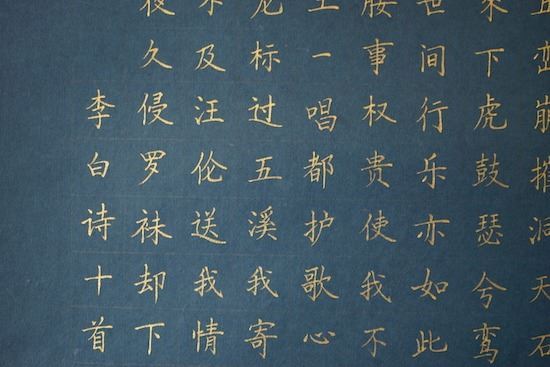 丘峦崩摧洞天石
来下虎鼓瑟兮鸾
世间行乐亦如此
腰事权贵使我不
土一唱都护歌心
龙标过五溪我寄
不及汪伦送我情
夜久侵罗袜却下
李白诗十首